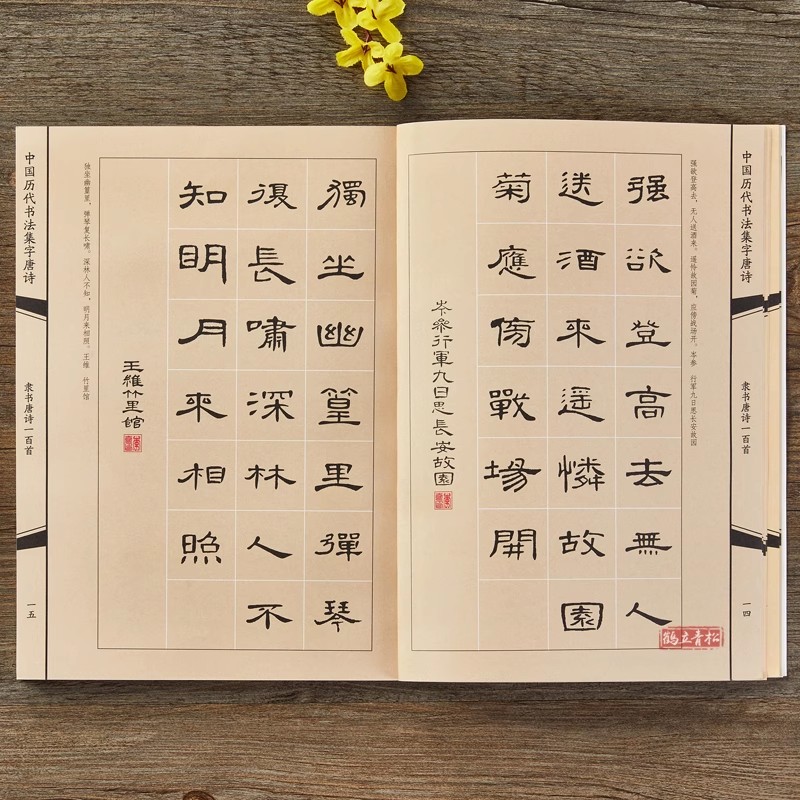 中国历代书法集字唐诗
隶书唐诗一百首
一四
强欲登高去，无人送酒来。遥怜故园菊，应傍战场开。岑参 行军九日思长安故园
强欲登高去無人
送酒来遥憐故園
菊應傍戰場開
岑參行軍九日思長安故園
鹤立青松
独坐幽篁里，弹琴复长啸。深林人不知，明月来相照。王维 竹里馆
獨坐幽篁里彈琴
復長嘯深林人不
知明月來相照
王維竹里館
中国历代书法集字唐诗
隶书唐诗一百首
一五